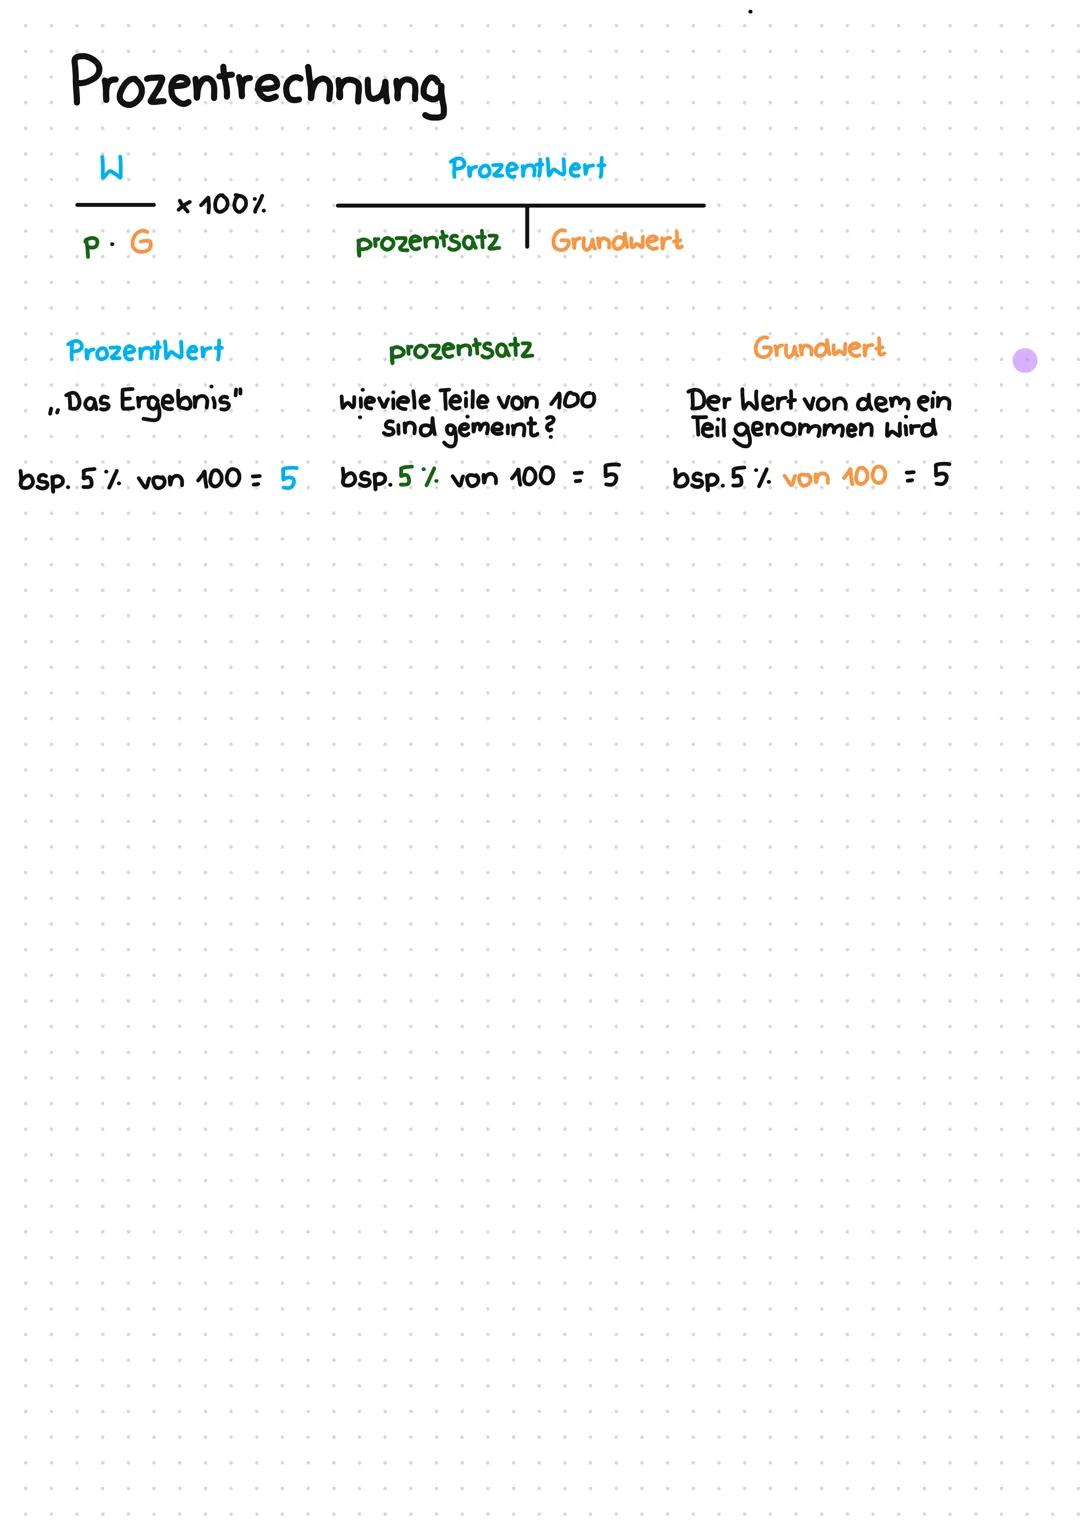 Prozentrechnung
W
x 100%
p · G
ProzentWert
prozentsatz Grundwert
ProzentWert
„Das Ergebnis"
bsp. 5% von 100 = 5
prozentsatz
wieviele Teile von 100
sind gemeint?
bsp. 5% von 100 = 5
Grundwert
Der Wert von dem ein
Teil genommen wird
bsp. 5% von 100 = 5